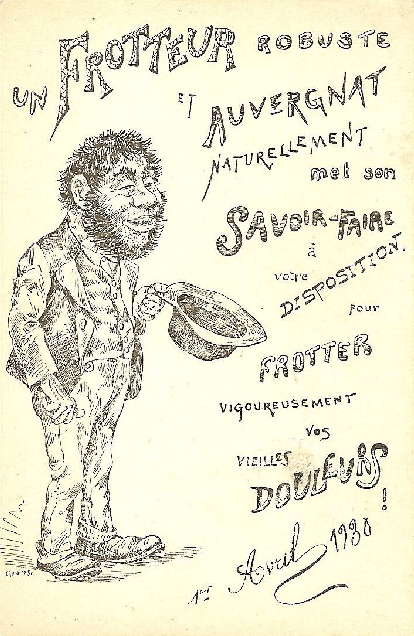 UN FROTTEUR ROBUSTE
ET AUVERGNAT
NATURELLEMENT
met son
SAVOIR-FAIRE
à
votre
DISPOSITION.
pour
FROTTER
VIGOUREUSEMENT
VOS
VIEILLES
DOULEURS!
1er Avril 1930